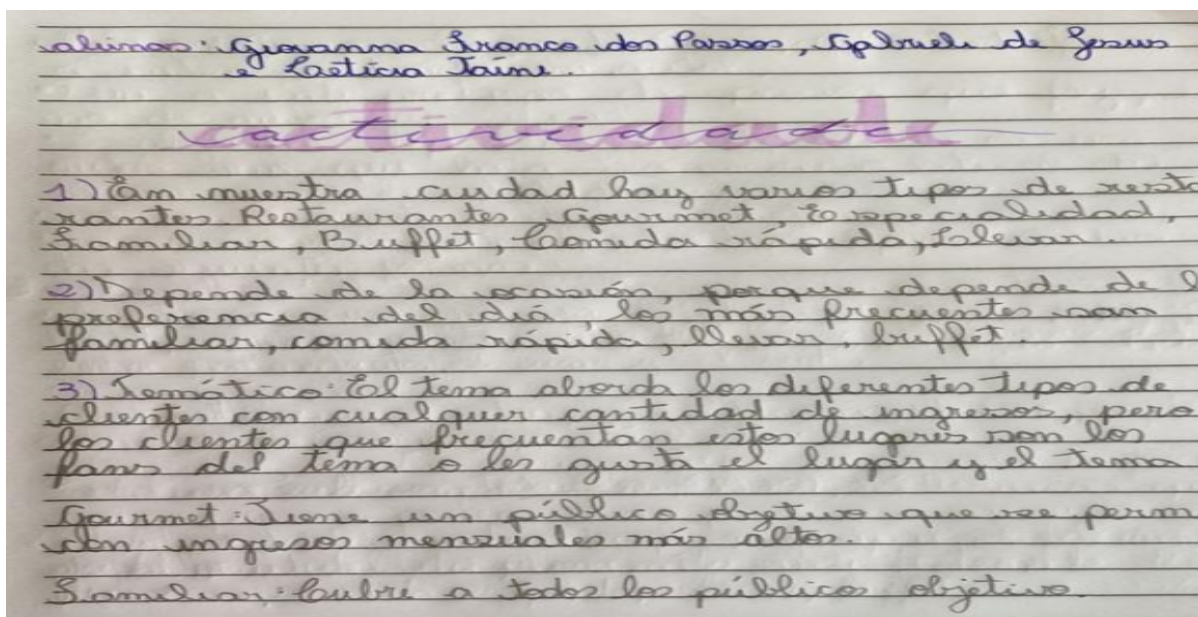 alunas: Giovanna Franco dos Passos, Gabriele de Jesus
e Laeticia Taine.
actividade
1) Em nuestra ciudad hay varios tipos de resta
rantes Restaurantes Gourmet, Especialidad,
Familiar, Buffet, Comida rápida, llevar.
2) Depende de la ocasión, porque depende de l
preferencia del diá, los más frecuentes son
familiar, comida rápida, llevar, buffet.
3) Temático: El tema aborda los diferentes tipos de
clientes con cualquer cantidad de ingresos, pero
los clientes que frecuentan estos lugares son los
fans del tema o les gusta el lugar y el tema
Gourmet: Tiene un público objetivo que see perm
con ingresos mensuales más altos.
Familiar: Cubre a todos los públicos objetivo.